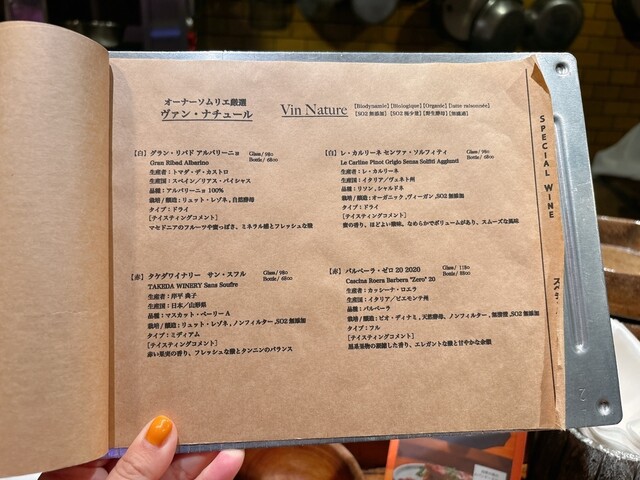 オーナーソムリエ厳選
ヴァン・ナチュール
Vin Nature
【Biodynamie】【Biologique】【Organic】【lutte raisonnée】
【SO2 無添加】【SO2 極少量】【野生酵母】【無濾過】
【白】グラン・リバド アルバリーニョ
Glass / 980
Bottle / 6800
Gran Ribad Albarino
生産者：トマダ・デ・カストロ
生産国：スペイン／リアス・バイシャス
品種：アルバリーニョ 100%
栽培 / 醸造：リュット・レゾネ、自然酵母
タイプ：ドライ
[テイスティングコメント]
マセドニアのフルーツや蜜っぽさ、ミネラル感とフレッシュな酸
【白】レ・カルリーネ センツァ・ソルフィティ
Glass / 980
Bottle / 6800
Le Carline Pinot Grigio Senza Solfiti Aggiunti
生産者：レ・カルリーネ
生産国：イタリア／ヴェネト州
品種：リソン、シャルドネ
栽培 / 醸造：オーガニック、ヴィーガン、SO2 無添加
タイプ：ドライ
[テイスティングコメント]
蜜の香り、ほどよい酸味。なめらかでボリュームがあり、スムーズな風味
【赤】タケダワイナリー サン・スフル
Glass / 980
Bottle / 6800
TAKEDA WINERY Sans Soufre
生産者：岸平 典子
生産国：日本／山形県
品種：マスカット・ベーリー A
栽培 / 醸造：リュット・レゾネ、ノンフィルター、SO2 無添加
タイプ：ミディアム
[テイスティングコメント]
赤い果実の香り、フレッシュな酸とタンニンのバランス
【赤】バルベーラ・ゼロ 20 2020
Glass / 1180
Bottle / 8800
Cascina Roera Barbera "Zero" 20
生産者：カッシーナ・ロエラ
生産国：イタリア／ピエモンテ州
品種：バルベーラ
栽培 / 醸造：ビオ・ディナミ、天然酵母、ノンフィルター、無清澄、SO2 無添加
タイプ：フル
[テイスティングコメント]
黒系果物の凝縮した香り、エレガントな酸と甘やかな余韻
SPECIAL WINE
2